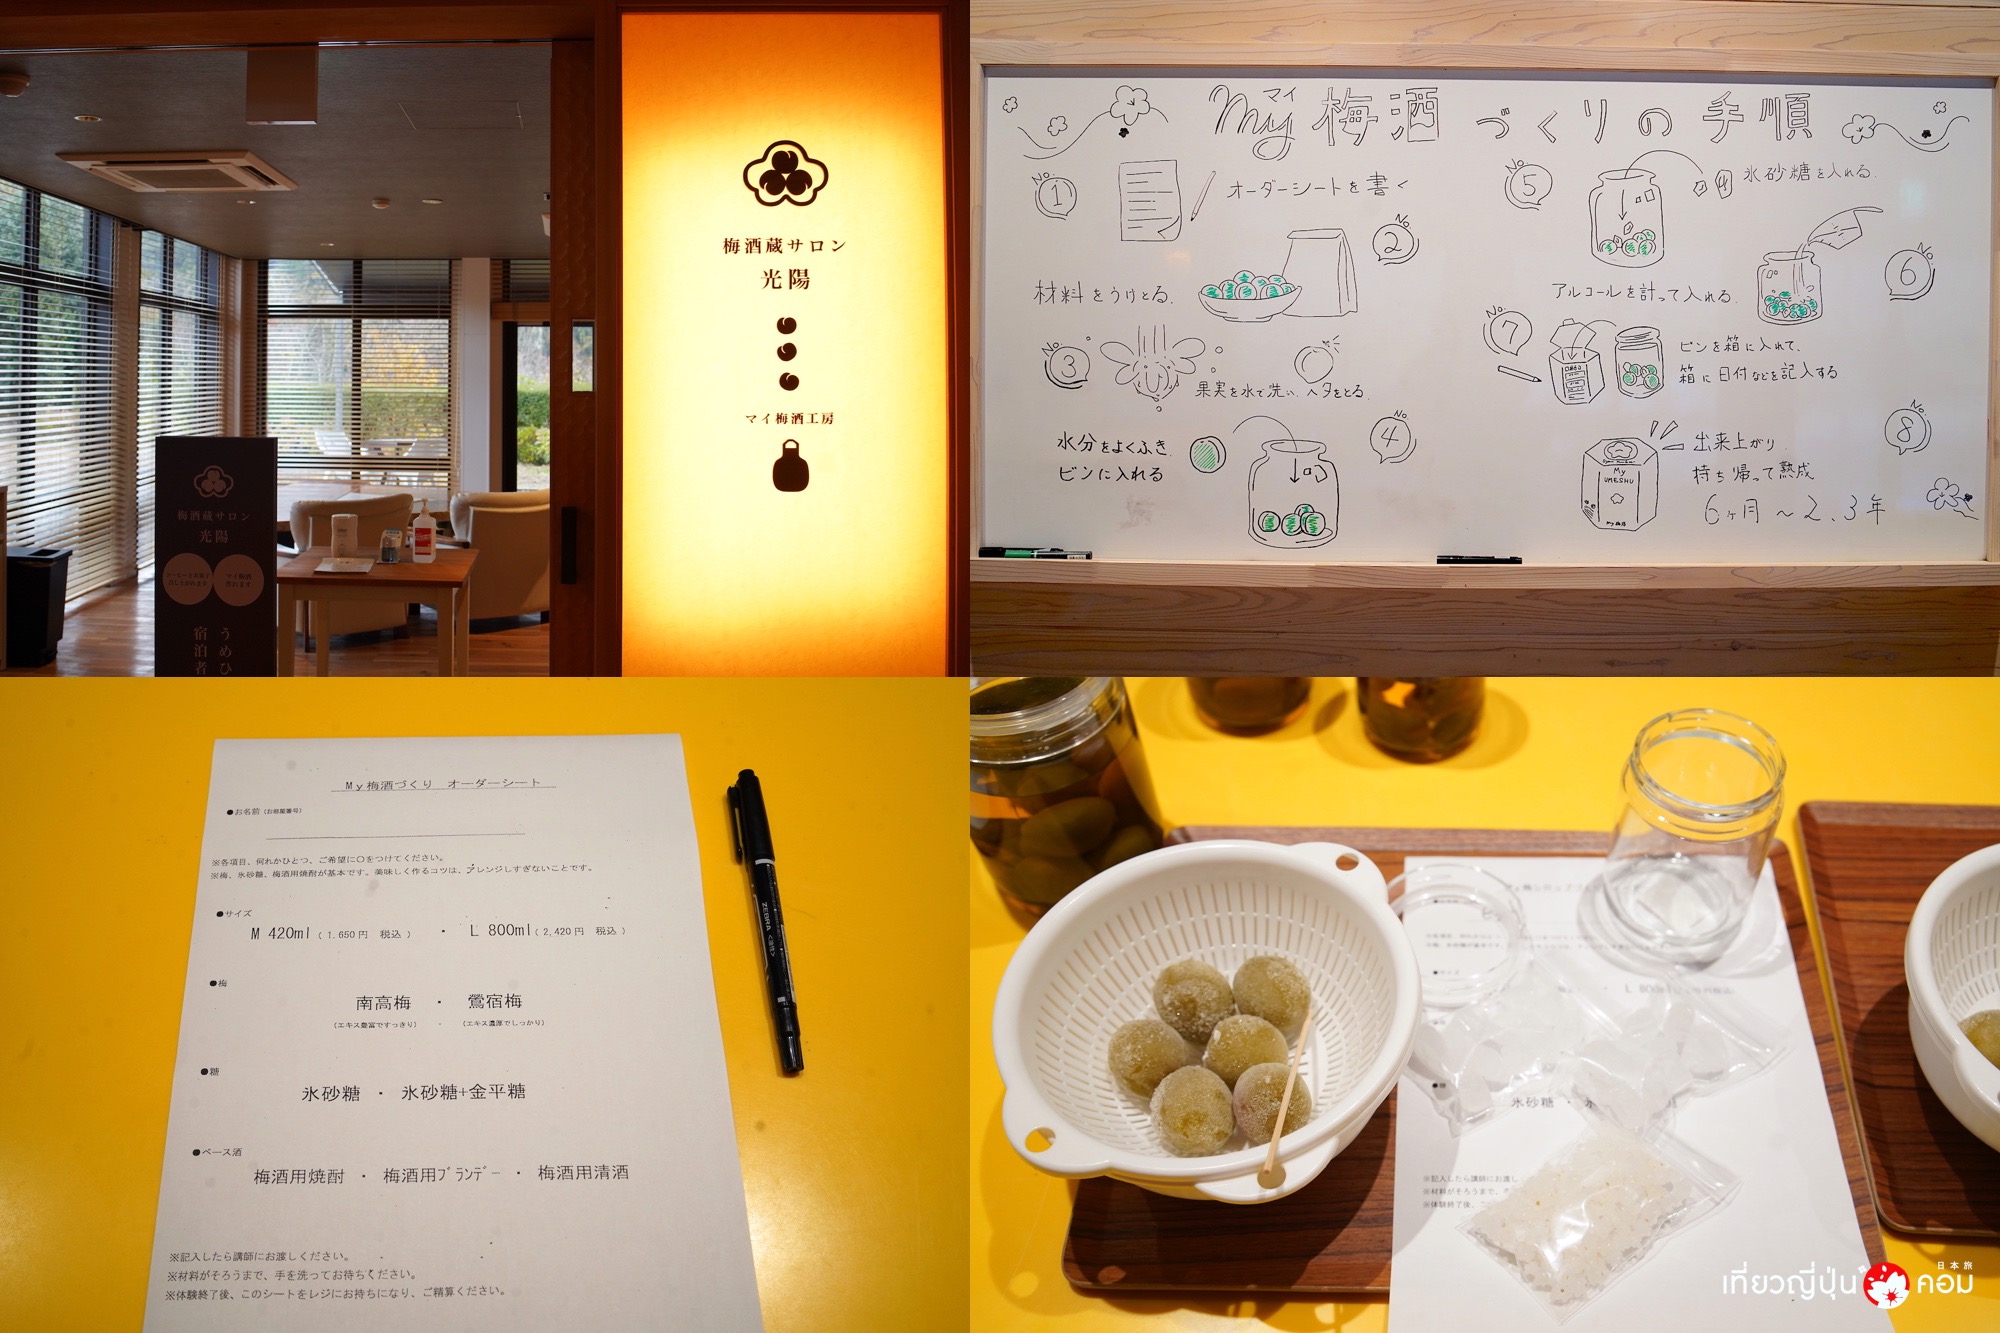 梅酒蔵サロン
光陽
マイ梅酒工房
梅酒蔵サロン
光陽
うめひ
宿泊者
マイ
My梅酒づくりの手順
No.1
オーダーシートを書く
No.2
材料をうけとる。
No.3
果実を水で洗い、ヘタをとる。
No.4
水分をよくふき、
ビンに入れる
No.5
氷砂糖を入れる。
No.6
アルコールを計って入れる。
No.7
ビンを箱に入れて、
箱に日付などを記入する
No.8
My
UMESHU
出来上がり
持ち帰って熟成
6ヶ月〜2、3年
My梅酒づくり オーダーシート
●お名前（お部屋番号）
※各項目、何れかひとつ、ご希望に○をつけてください。
※梅、氷砂糖、梅酒用焼酎が基本です。美味しく作るコツは、アレンジしすぎないことです。
●サイズ
M 420ml（1,650円 税込） ・ L 800ml（2,420円 税込）
●梅
南高梅 ・ 鶯宿梅
（エキス豊富ですっきり） ・ （エキス濃厚でしっかり）
●糖
氷砂糖 ・ 氷砂糖+金平糖
●ベース酒
梅酒用焼酎 ・ 梅酒用ブランデー ・ 梅酒用清酒
※記入したら講師にお渡しください。
※材料がそろうまで、手を洗ってお待ちください。
※体験終了後、このシートをレジにお持ちになり、ご精算ください。
ZEBRA
L 800ml
氷砂糖 ・
※記入したら講師にお渡し
※材料がそろうまで、
※体験終了後、こ
日本旅
เที่ยวญี่ปุ่น คอม